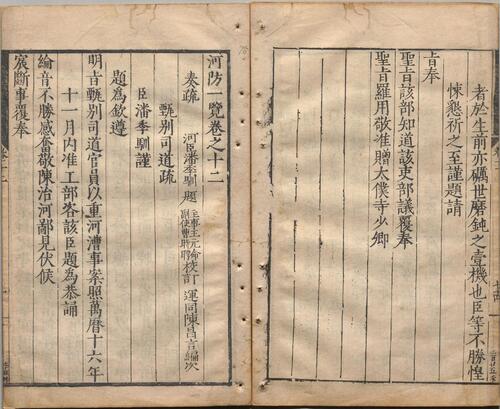 者於生前亦礪世磨鈍之壹機也臣等不勝惶
悚懇祈之至謹題請
旨奉
聖旨該部知道該吏部議覆奉
聖旨羅用敬准贈太僕寺少卿
河防一覽卷之十二
河臣潘季馴題
主事王元命校訂
副使曹時聘
運同陳昌言編次
奏疏
甄别司道疏
臣潘季馴謹
題為欽遵
明旨甄别司道官員以重河漕事案照萬曆十六年
十一月内准工部咨該臣題為恭誦
綸音不勝感奮敬陳治河鄙見伏候
宸斷事覆奉